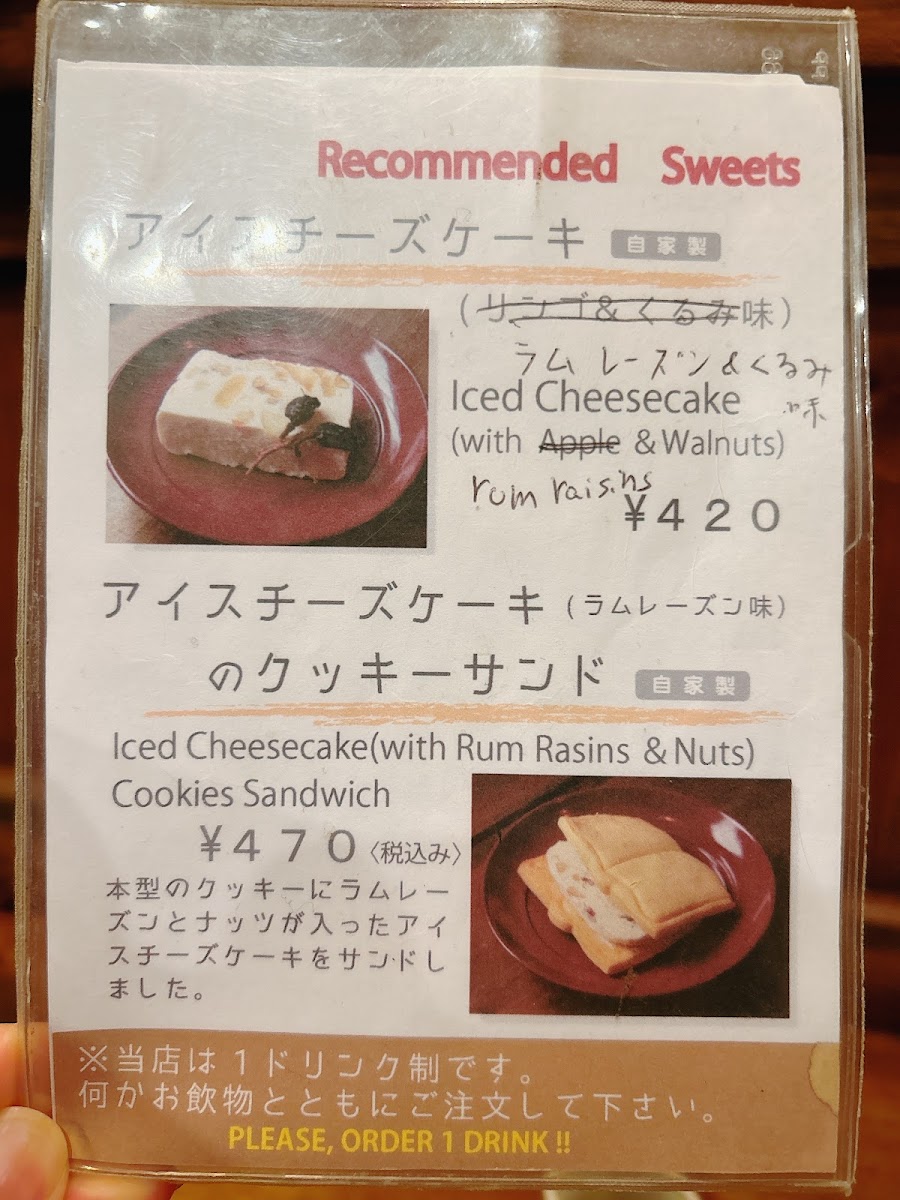 Recommended Sweets
アイスチーズケーキ 自家製
(リンゴ&くるみ味)
ラムレーズン&くるみ味
Iced Cheesecake
(with Apple & Walnuts)
rum raisins
¥420
アイスチーズケーキ(ラムレーズン味)
のクッキーサンド 自家製
Iced Cheesecake(with Rum Rasins & Nuts)
Cookies Sandwich
¥470〈税込み〉
本型のクッキーにラムレー
ズンとナッツが入ったアイ
スチーズケーキをサンドし
ました。
※当店は1ドリンク制です。
何かお飲物とともにご注文して下さい。
PLEASE, ORDER 1 DRINK !!